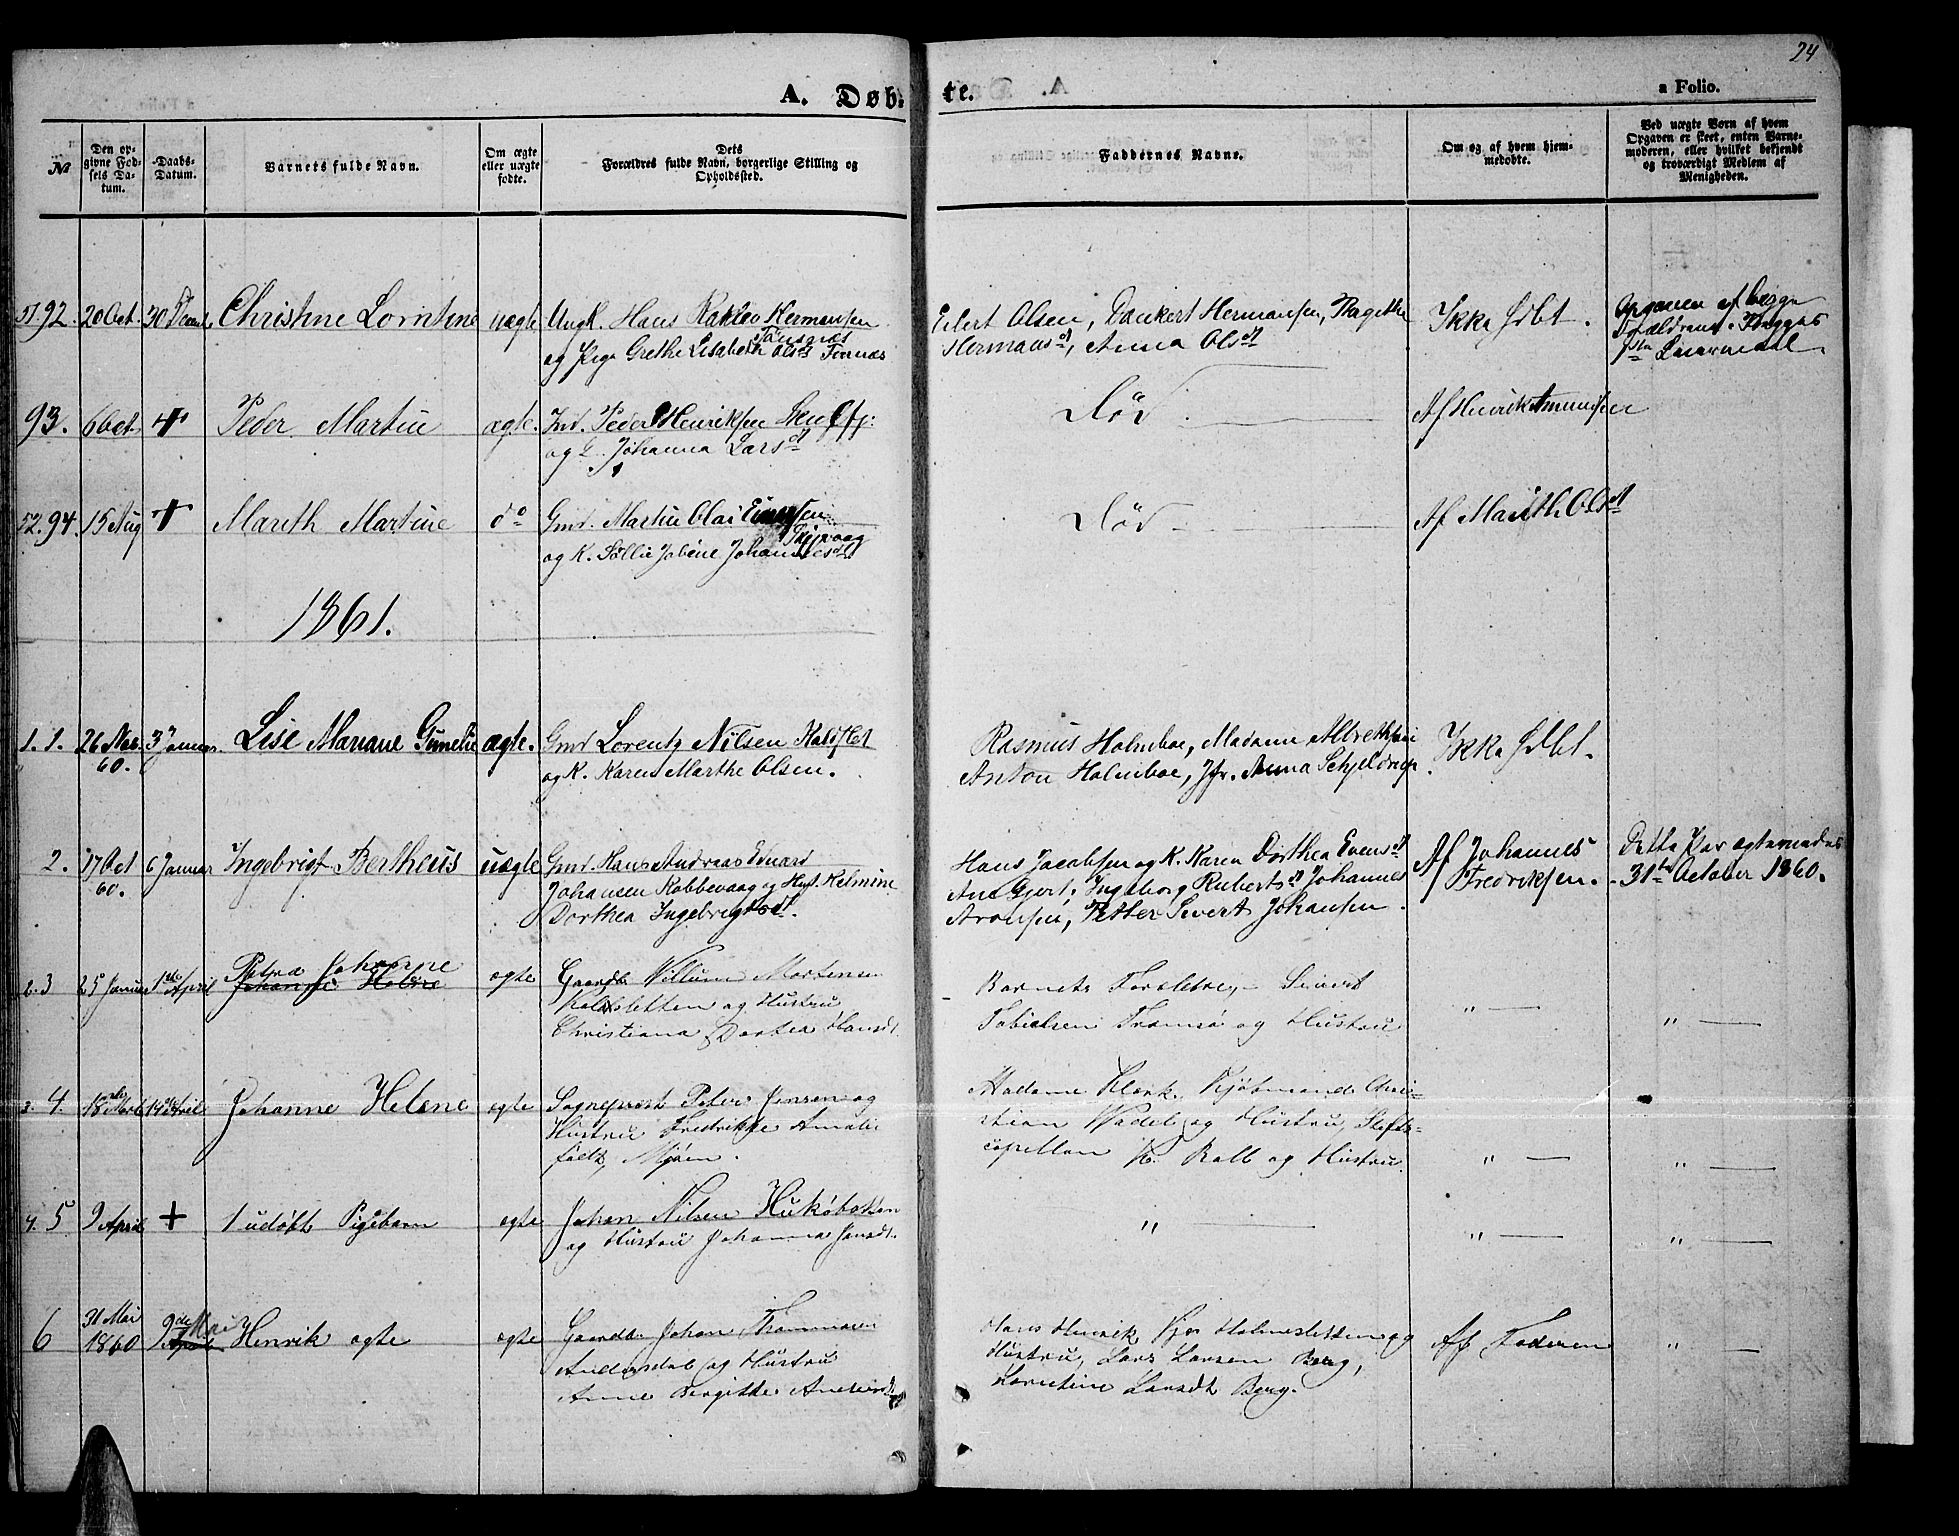 24
A. Døbte.
a Folio.
№
Den opgivne Fødsels Datum.
Daabs-Datum.
Barnets fulde Navn.
Om ægte eller uægte fødte.
Dets Forældres fulde Navn, borgerlige Stilling og Opholdssted.
Faddernes Navne.
Om og af hvem hjemmedøbte.
Ved uægte Børn af hvem Opgaven er skeet, enten Barnemoderen, eller hvilket bekjendt og troværdigt Medlem af Menigheden.
51. 92. 20 Oct. 30 Decemb Christine Lorntine uægte Ungk. Hans Hermansen Tønsnæs
og Pige Grethe Lisabeth Olsd Tønnæs
Eilert Olsen, Dankert Hermansen, Magrethe
Hermansd, Anna Olsd
Ikke hdbt.
Opgaven af begge
Forældrene
93. 6 Oct. + Peder Martin ægte. Ind. Peder Henriksen
og Johanna Larsd
Død.
Af Henrik Amundsen
52. 94. 15 Aug + Mareth Martine do Gmd. Martin Olai
og K. Jobine Johannesd
Død
Af Marith Olsd
1861.
1. 1. 26 Nov. 60. 3 Januar Lise Mariane Gunelie ægte. Gmd Lorentz Nilsen Kalslet
og K. Karen Marthe Olsen.
Rasmus Holmboe, Madame
Anton Holmboe, Jfr. Anna Schjeldrup
Ikke hdbt.
2. 17 Oct 60. 6 Januar Ingebrigt Bertheus uægte Gmd. Hans Andreas Edvard
Johansen Kobbevaag og Hust. Kelmine
Dorthea Ingebrigtsdt.
Hans Jacobsen og K. Karen Dorthea Evensd
Ane Gjert. Ingeborg Rubertsd Johannes
Aronsen, Petter Sivert Johansen.
Af Johannes
Fredriksen.
Dette Par ægteviedes
31te October 1860.
2. 3 25 Januar 1ste April Petra Johanne
Johanne Helene
ægte Gaardb. Villum Mortensen
Kalsletten og Hustru
Christiana Dortea Hansdt.
Barnets Forældre, Sivert
Tobielsen Tromsø og Hustru
" —
" —
3. 4. 18de Marts 14de April Johanne Helene ægte Sogneprest Peter Jensen og
Hustru Fredrikke Amalie
født Mjøen.
Madame Klerk. Kjøbmand Chri-
stian Wadel og Hustru, Stifts-
capellan K. Balb og Hustru.
" —
" —
4. 5 9 April + 1 udøbt Pigebarn ægte Johan Nilsen Hukøbotten
og Hustru Johanna Jensdt.
" —
" —
" —
6 31 Mai 1860 9de Mai April Henrik ægte ægte Gaardb. Johan
Andersdal og Hustru
Anne Bergitte
Hans Henrik Holmesletten og
Hustru, Lars Larsen Berg,
Lorntine Larsdt Berg.
Af Faderen
" —